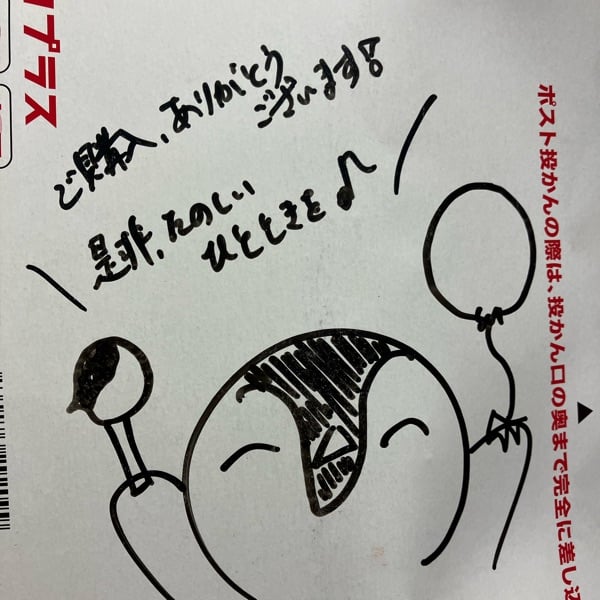 ご購入、ありがとう
ございます!
是非、たのしい
ひとときを♪
プラス
ポスト投かんの際は、投かん口の奥まで完全に差し込